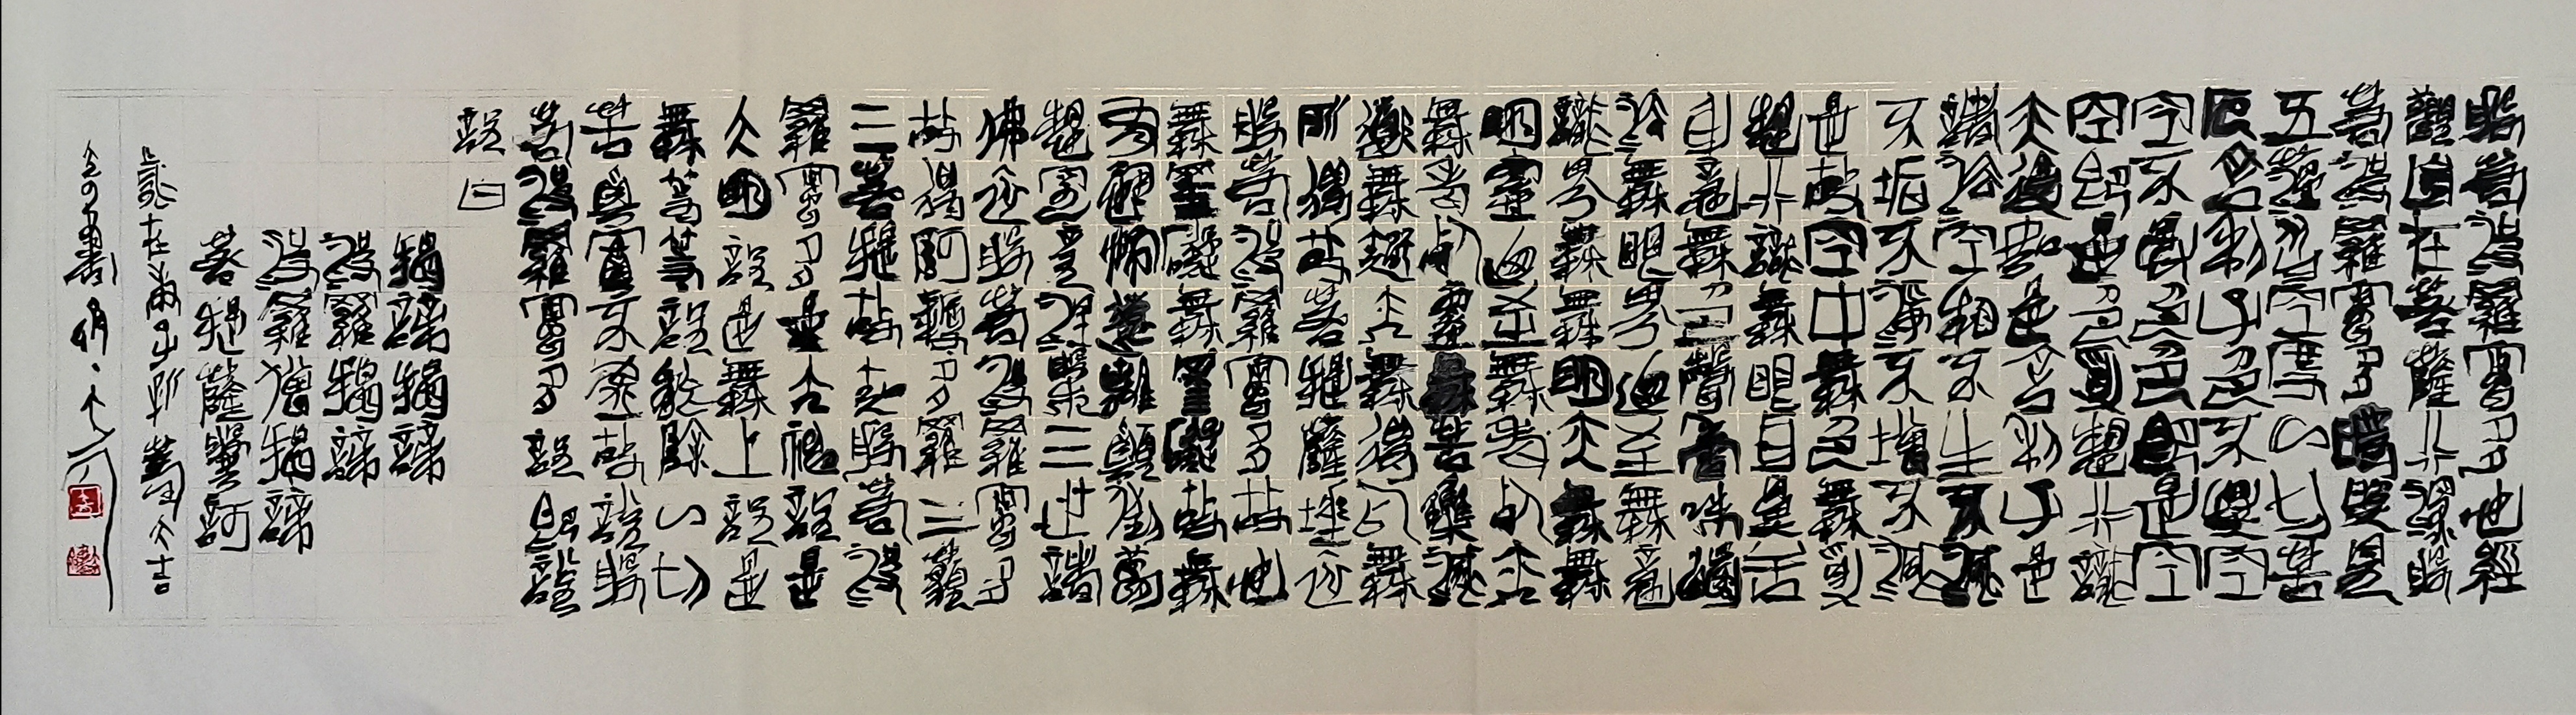 般若波羅蜜多心經
觀自在菩薩行深般
若波羅蜜多時照見
五蘊皆空度一切苦
厄舍利子色不異空
空不異色色即是空
空即是色受想行識
亦復如是舍利子是
諸法空相不生不滅
不垢不淨不增不減
是故空中無色無受
想行識無眼耳鼻舌
身意無色聲香味觸
法無眼界乃至無意
識界無無明亦無無
明盡乃至無老死亦
無老死盡無苦集滅
道無智亦無得以無
所得故菩提薩埵依
般若波羅蜜多故心
無罣礙無罣礙故無
有恐怖遠離顛倒夢
想究竟涅槃三世諸
佛依般若波羅蜜多
故得阿耨多羅三藐
三菩提故知般若波
羅蜜多是大神咒是
大明咒是無上咒是
無等等咒能除一切
苦真實不虛故說般
若波羅蜜多咒即說
咒曰
揭諦揭諦
波羅揭諦
波羅僧揭諦
菩提薩婆訶